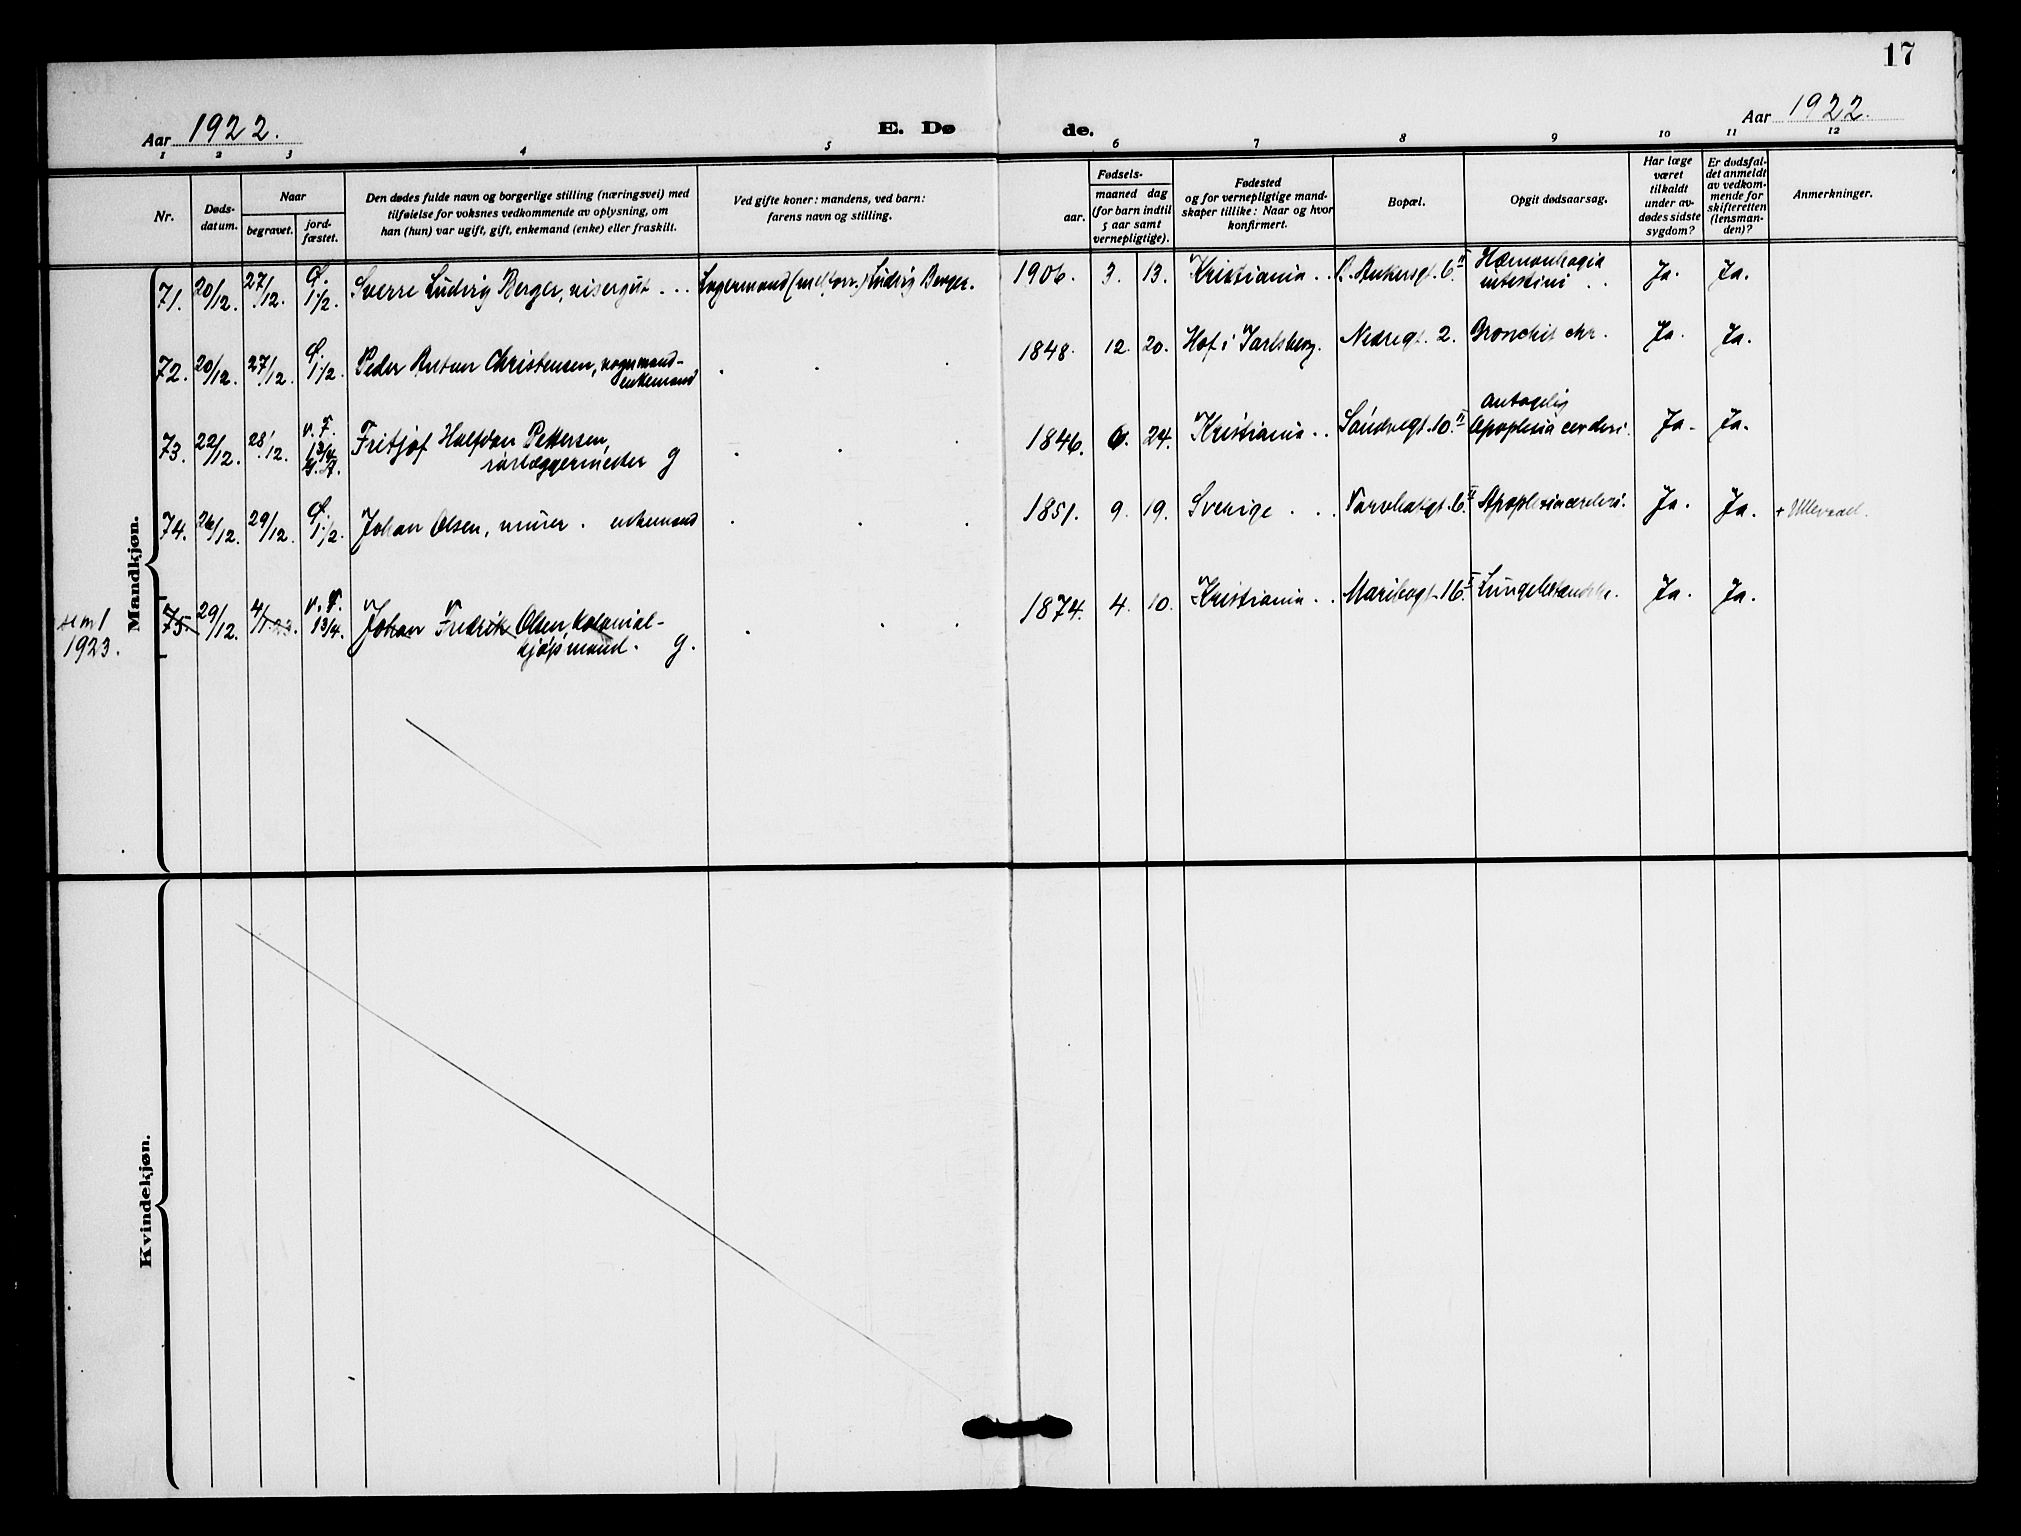 17
Aar 1922.
E. Dø
de.
Aar 1922.
1 2 3 4 5 6 7 8 9 10 11 12
Nr.
Døds-
datum.
Naar
begravet.
jord-
fæstet.
Den dødes fulde navn og borgerlige stilling (næringsvei) med
tilføielse for voksnes vedkommende av oplysning, om
han (hun) var ugift, gift, enkemand (enke) eller fraskilt.
Ved gifte koner: mandens, ved barn:
farens navn og stilling.
Fødsels-
aar.
maaned dag
(for barn indtil
5 aar samt
vernepligtige).
Fødested
og for vernepligtige mand-
skaper tillike: Naar og hvor
konfirmert.
Bopæl.
Opgit dødsaarsag.
Har læge
været
tilkaldt
under av-
dødes sidste
sygdom?
Er dødsfal-
det anmeldt
av vedkom-
mende for
skifteretten
(lensman-
den)?
Anmerkninger.
Mandkjøn.
71. 20/12. 27/12. Ø. 1/2. Sverre Ludvig Berger, visergut . . . Lagermand Ludvig Berger. 1906. 3. 13. Kristiania . . Ankersgt. 6 II
intestini . . Ja. Ja.
72. 20/12. 27/12. Ø. 1/2. Peder Anton Christensen, vognmand-
enkemand 1848. 12. 20. Hof i Jarlsberg. Nedregt. 2. Bronchit chr. Ja. Ja.
73. 22/12. 28/12. v. F. 13/4. Fritjof Halfdan Pettersen,
rørlæggermester g 1846. 6. 24. Kristiania . . 10 II
antagelig
Apoplexia cerebri. Ja. Ja.
74. 26/12. 29/12. Ø. 1/2. Johan Olsen, murer . enkemand 1851. 9. 19. Sverige . . . 6 II Apoplexia cerebri. Ja. Ja. + Ullevaal.
se nr 1
1923.
75. 29/12. 4/1.23. v. F. 13/4. Johan Fredrik Olsen, kolonial-
kjøpmand. g. 1874. 4. 10. Kristiania . . Maribogt. 16 I Lungebetændelse. Ja. Ja.
Kvindekjøn.